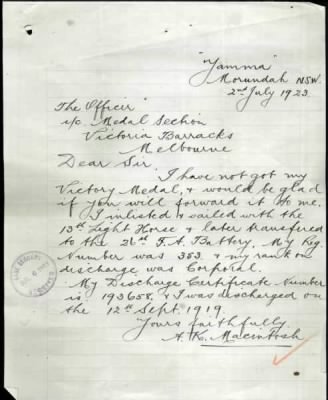 "Yamma"
Morundah NSW.
2nd July 1923.
The Officer
i/c Medal Section
Victoria Barracks
Melbourne
Dear Sir
I have not got my
Victory Medal, & would be glad
if you will forward it to me.
I inlisted & sailed with the
13th Light Horse & later transfered
to the 26th F.A. Battery. My Reg.
Number was 353. & my rank on
discharge was Corporal.
My Discharge Certificate Number
is 193658. & I was discharged on
the 12th Sept. 1919.
Yours faithfully
A. K. Macintosh